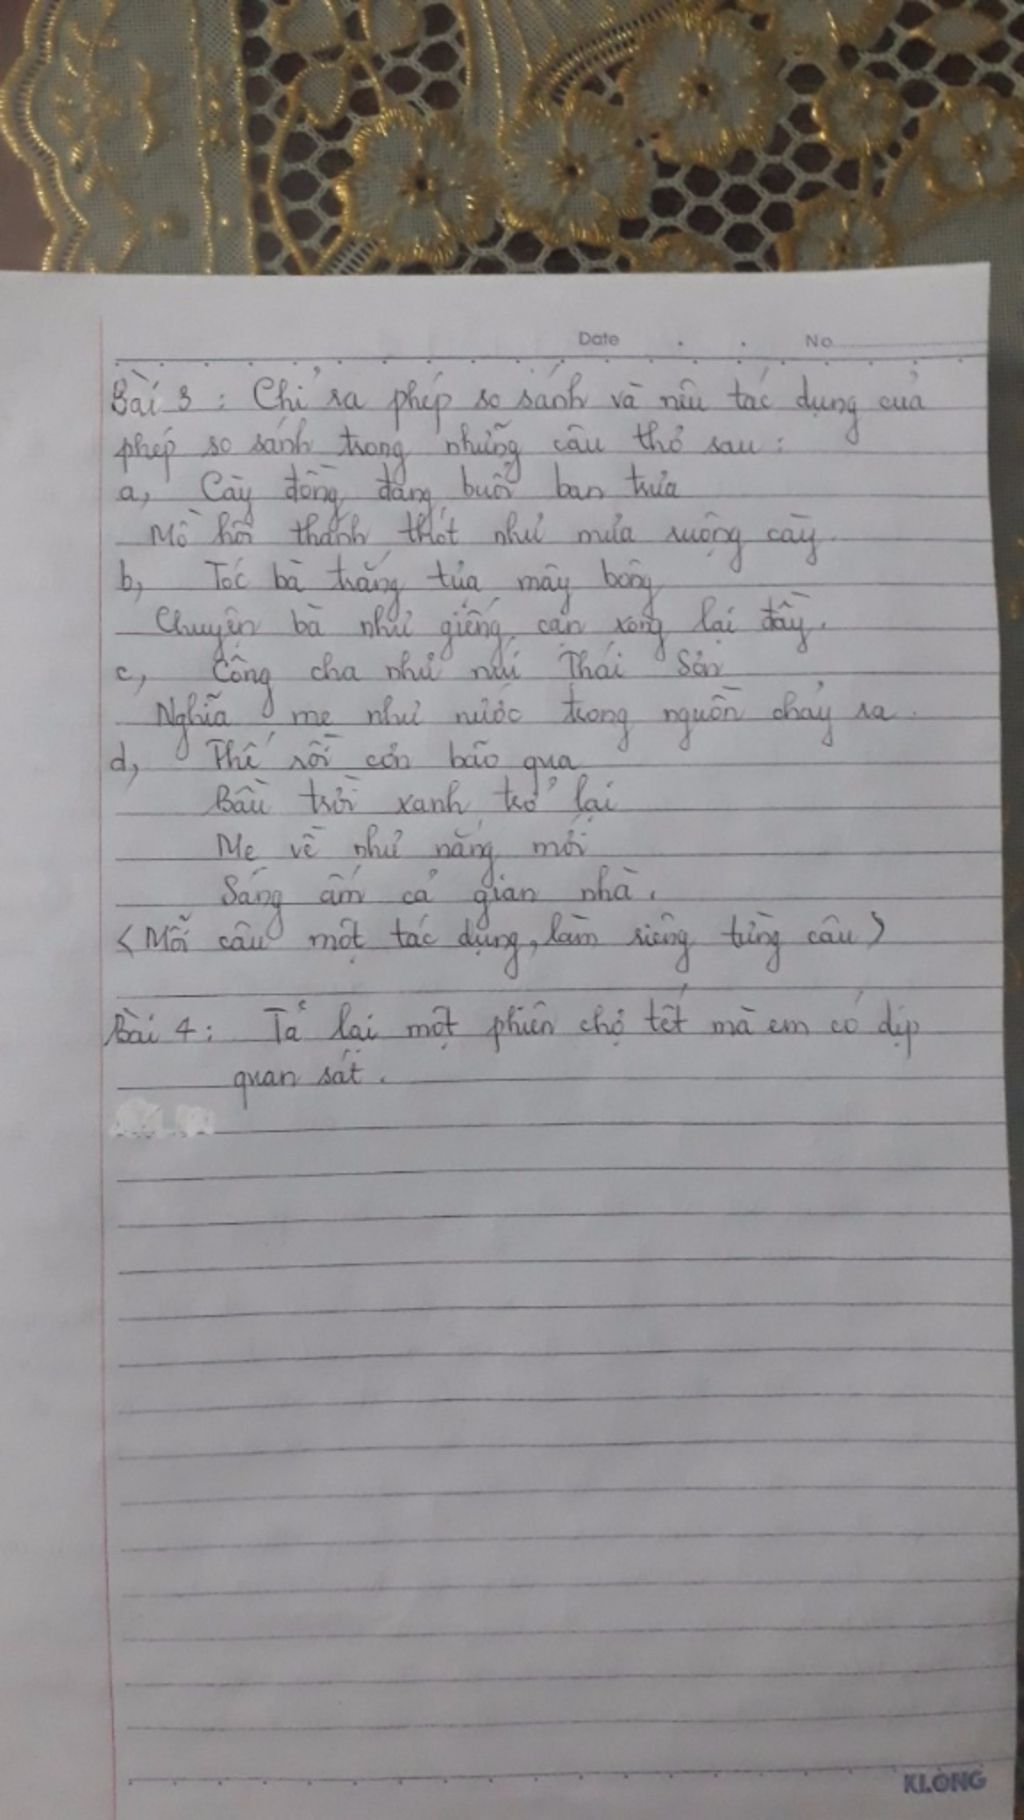 Date . . No
Bài 3 : Chỉ ra phép so sánh và nêu tác dụng của
phép so sánh trong những câu thơ sau :
a, Cày đồng đang buổi ban trưa
Mồ hôi thánh thót như mưa ruộng cày.
b, Tóc bà trắng tựa mây bông
Chuyện bà như giếng cạn xong lại đầy.
c, Công cha như núi Thái Sơn
Nghĩa mẹ như nước trong nguồn chảy ra.
d, Thế rồi cơn bão qua
Bầu trời xanh trở lại
Mẹ về như nắng mới
Sáng ấm cả gian nhà.
<Mỗi câu một tác dụng, làm riêng từng câu>
Bài 4 : Tả lại một phiên chợ tết mà em có dịp
quan sát.
KLONG